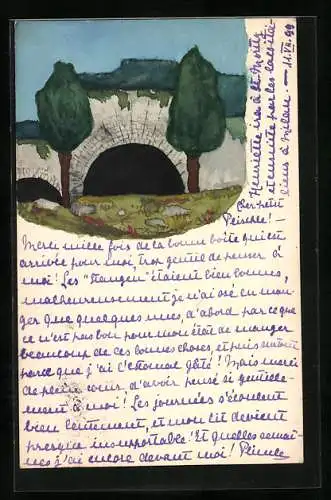 Cher petit
Peischle! –
Merci mille fois de la bonne boîte qui est
arrivée pour moi, trop gentil de penser à
moi! Les "Stangen" étaient bien bonnes,
malheureusement je n'ai osé en man-
ger que quelques unes, d'abord parce que
ce n'est pas bon pour mon état de manger
beaucoup de ces bonnes choses, et puis surtout
parce que j'ai l'estomac gâté! Mais merci
de plein coeur d'avoir pensé si gentille-
ment à moi! Les journées s'écoulent
bien lentement, et mon lit devient
presque insupportable! Et quelles semai-
nes j'ai encore devant moi!
Henriette ira à St. Moritz
et ensuite par les lacs ita-
liens à Milan. — 11. VII. 99